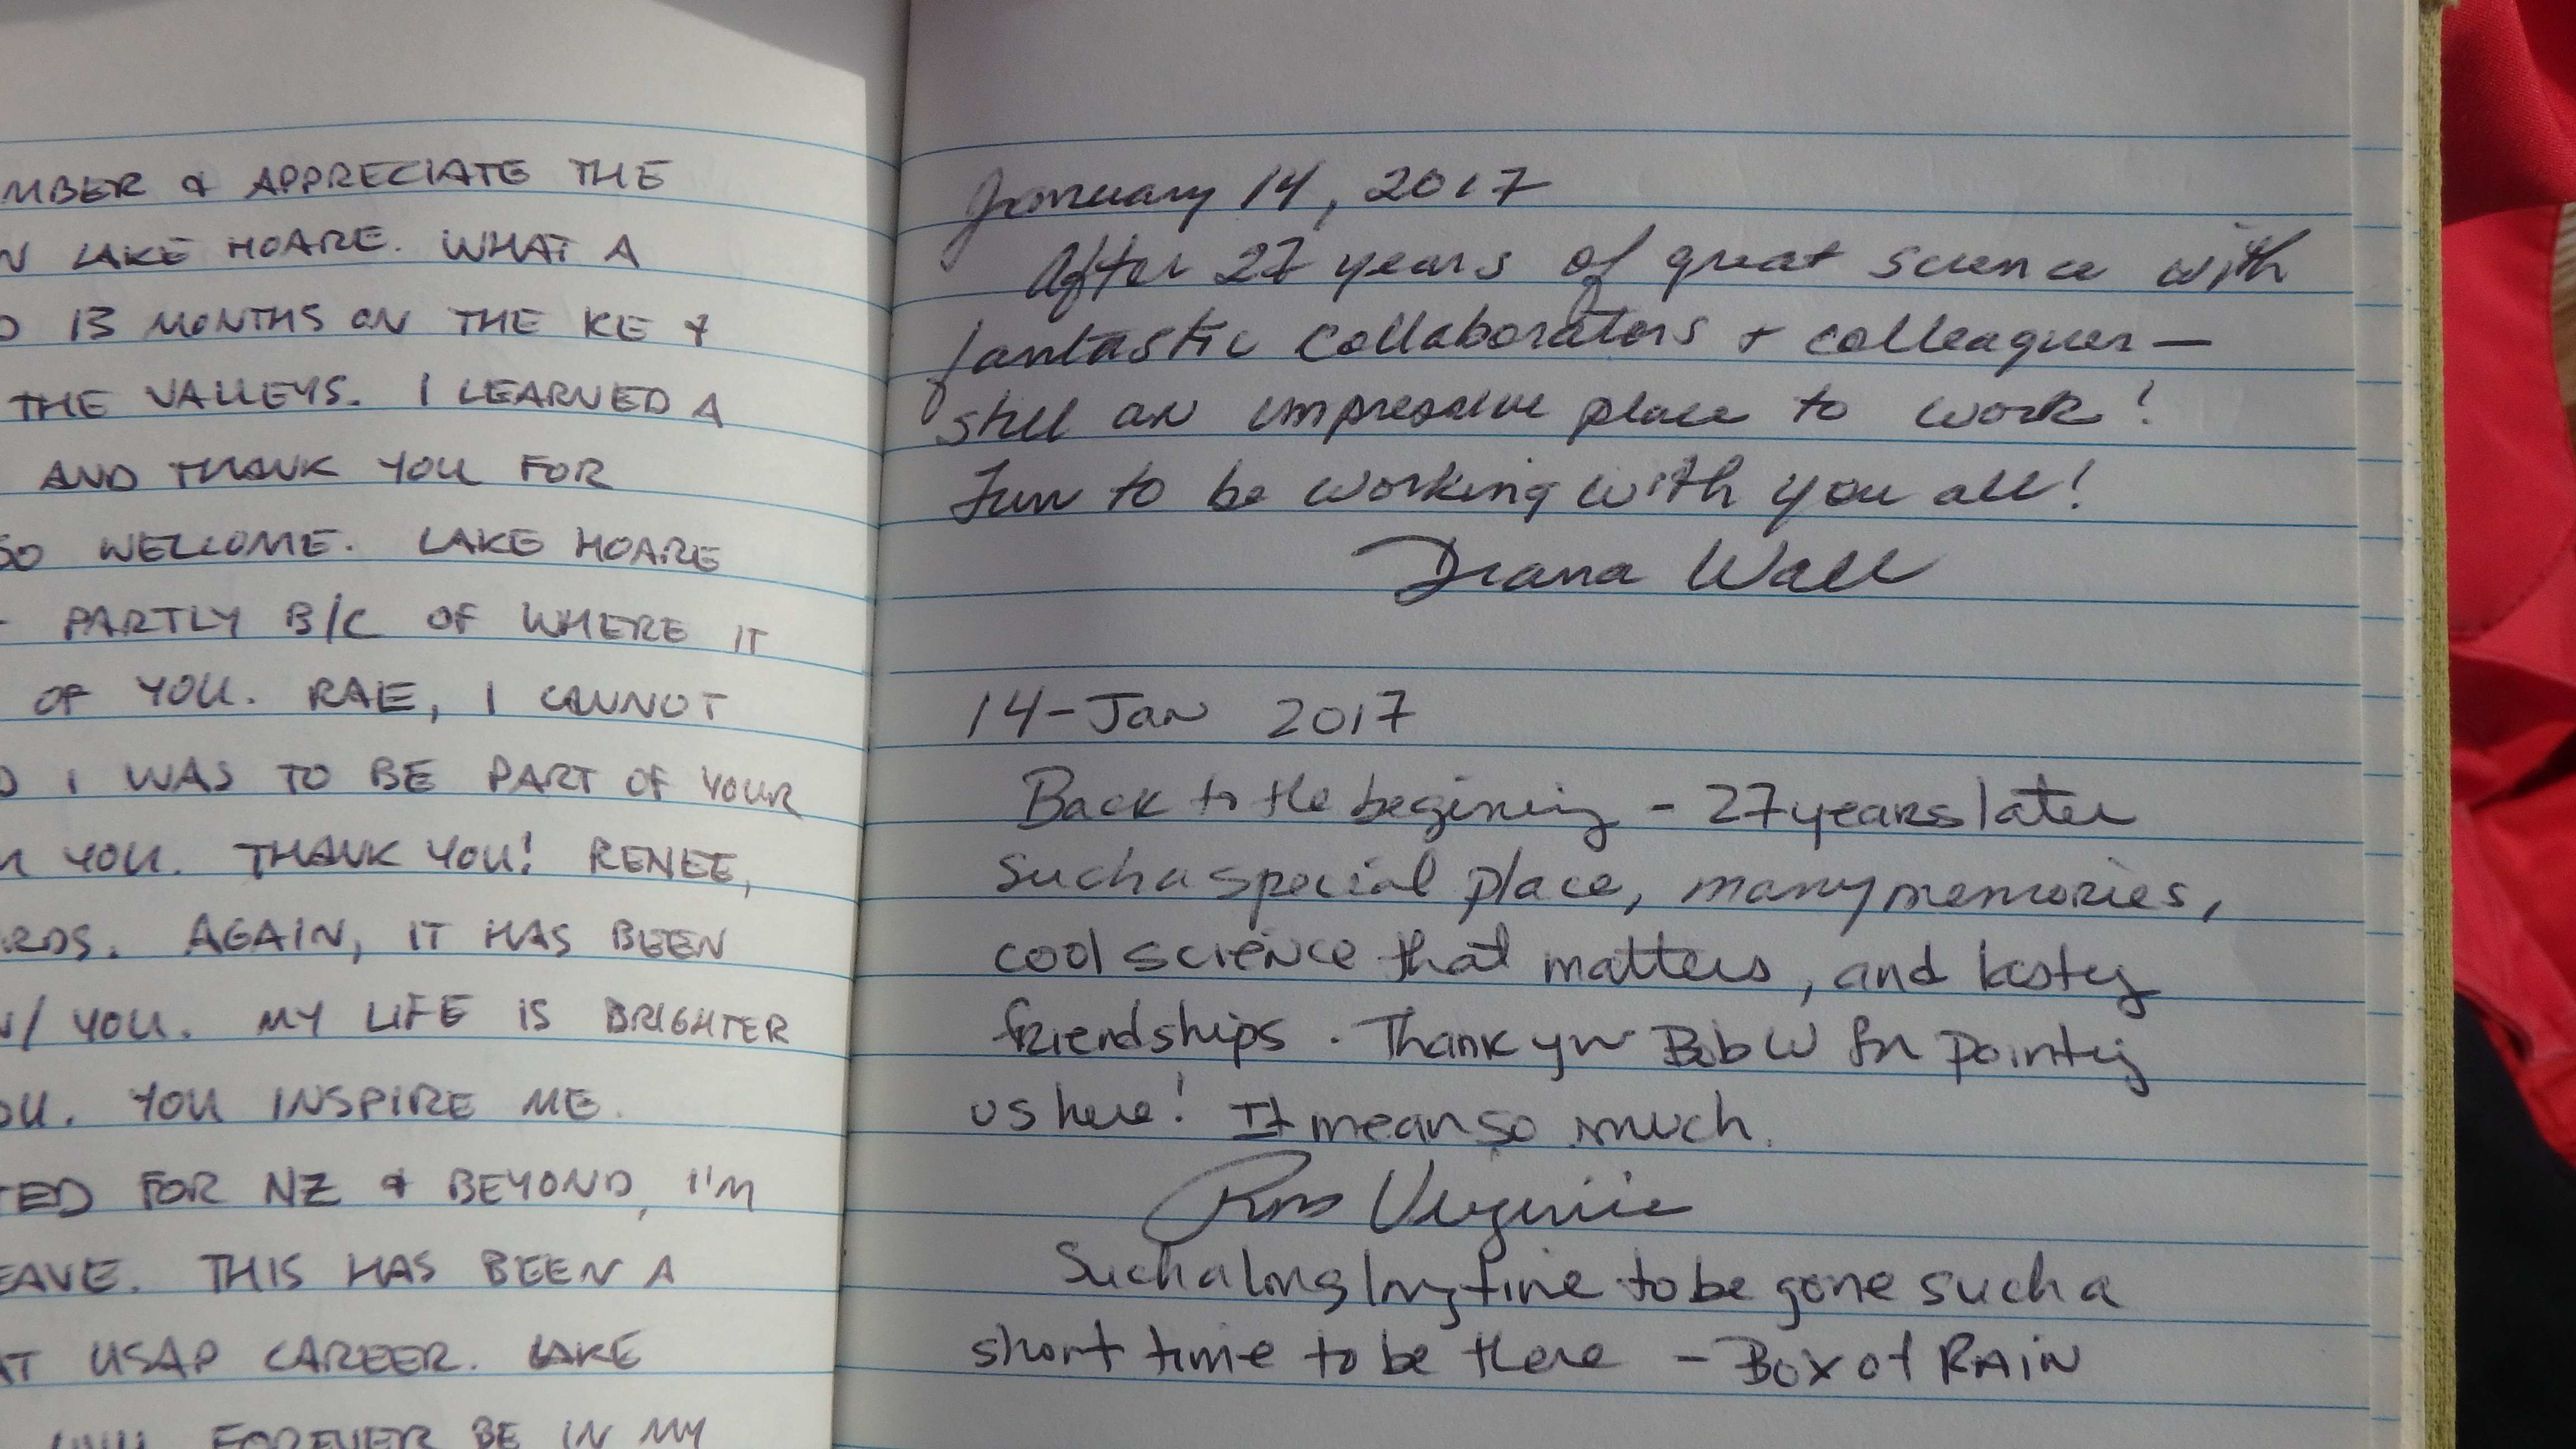 MBER & APPRECIATE THE
N LAKE HOARE. WHAT A
D 13 MONTHS ON THE KE &
THE VALLEYS. I LEARNED A
AND THANK YOU FOR
SO WELCOME. LAKE HOARE
- PARTLY B/C OF WHERE IT
OF YOU. RAE, I CANNOT
D I WAS TO BE PART OF YOUR
M YOU. THANK YOU! RENEE,
RDS. AGAIN, IT HAS BEEN
W/ YOU. MY LIFE IS BRIGHTER
OU. YOU INSPIRE ME.
TED FOR NZ & BEYOND, I'M
EAVE. THIS HAS BEEN A
AT USAP CAREER. LAKE
WILL FOREVER BE IN MY
January 14, 2017
After 27 years of great science with
fantastic collaborators + colleagues —
still an impressive place to work!
Fun to be working with you all!
Diana Wall
14-Jan 2017
Back to the begining - 27 years later
Such a special place, many memories,
cool science that matters, and lasty
friendships. Thank you Bob W for pointig
us here! It mean so much.
Ross Virginia
Such a long long time to be gone such a
short time to be there - Box of RAIN